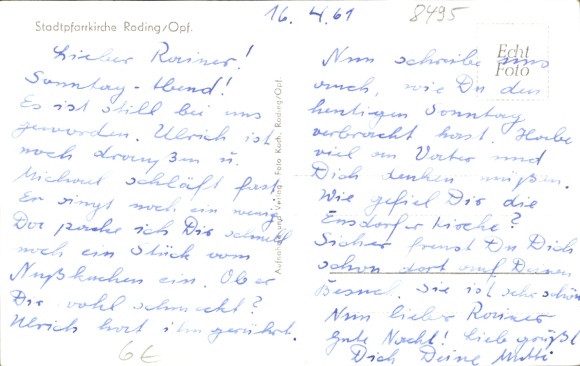 Stadtpfarrkirche Roding/Opf.
16. 4. 61
8495
Echt
Foto
Lieber Rainer!
Sonntag-Abend!
Es ist still bei uns
geworden. Ulrich ist
noch draußen u.
Michael schläft fast.
Er singt noch ein wenig.
Da packe ich Dir schnell
noch ein Stück vom
Nußkuchen ein. Ob er
Dir wohl schmeckt?
Ulrich hat ihn gerührt.
6€
Aufnahme und Verlag Foto Roding/Opf.
Nun schreibe uns
auch, wie Du den
heutigen Sonntag
verbracht hast. Habe
viel an Vater und
Dich denken müßen.
Wie gefiel Dir die
Ensdorfer Kirche?
Sicher freust Du Dich
schon dort auf Deinen
Besuch. Sie ist sehr schön
Nun lieber Rainer
Gute Nacht! Lieb grüßt
Dich Deine Mutti